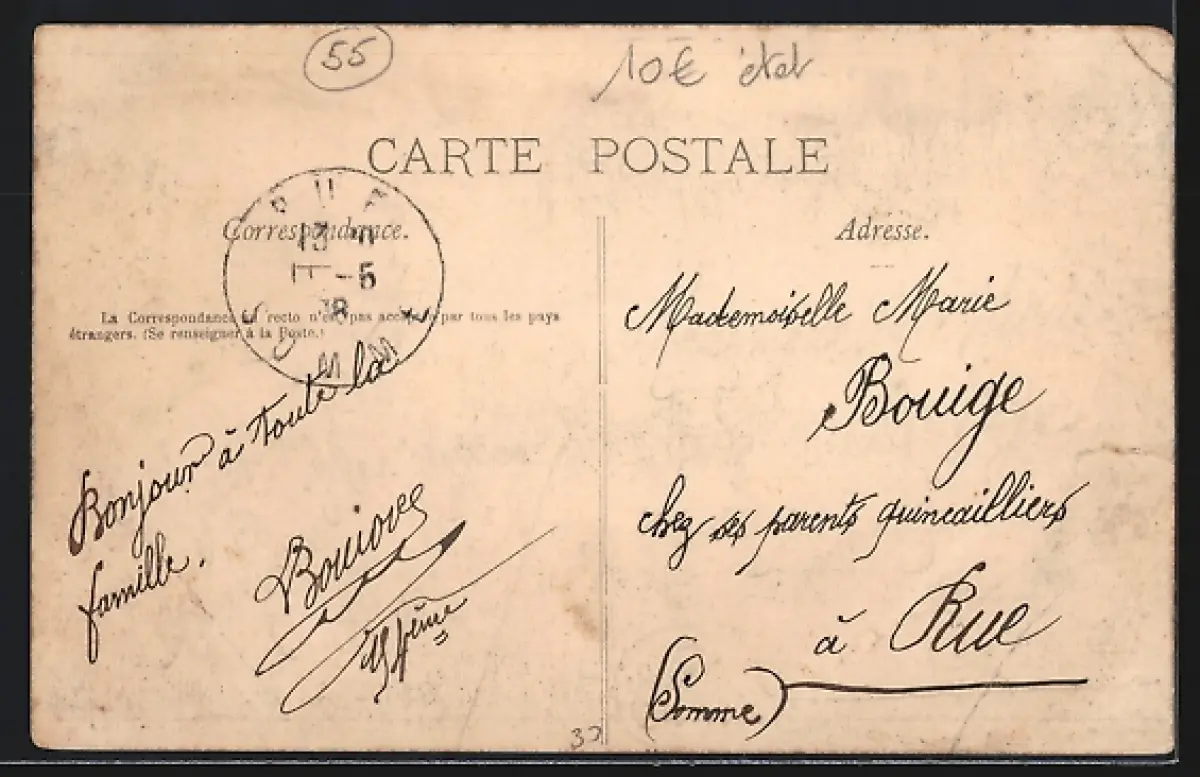 55
10€ état
CARTE POSTALE
Correspondance.
Adresse.
RUE
13 -5
La Correspondance au recto n'est pas acceptée par tous les pays
étrangers. (Se renseigner à la Poste.)
SOMME
Bonjour à toute la
famille.
Mademoiselle Marie
Bouige
chez ses parents quincailliers
à Rue
(Somme)
32